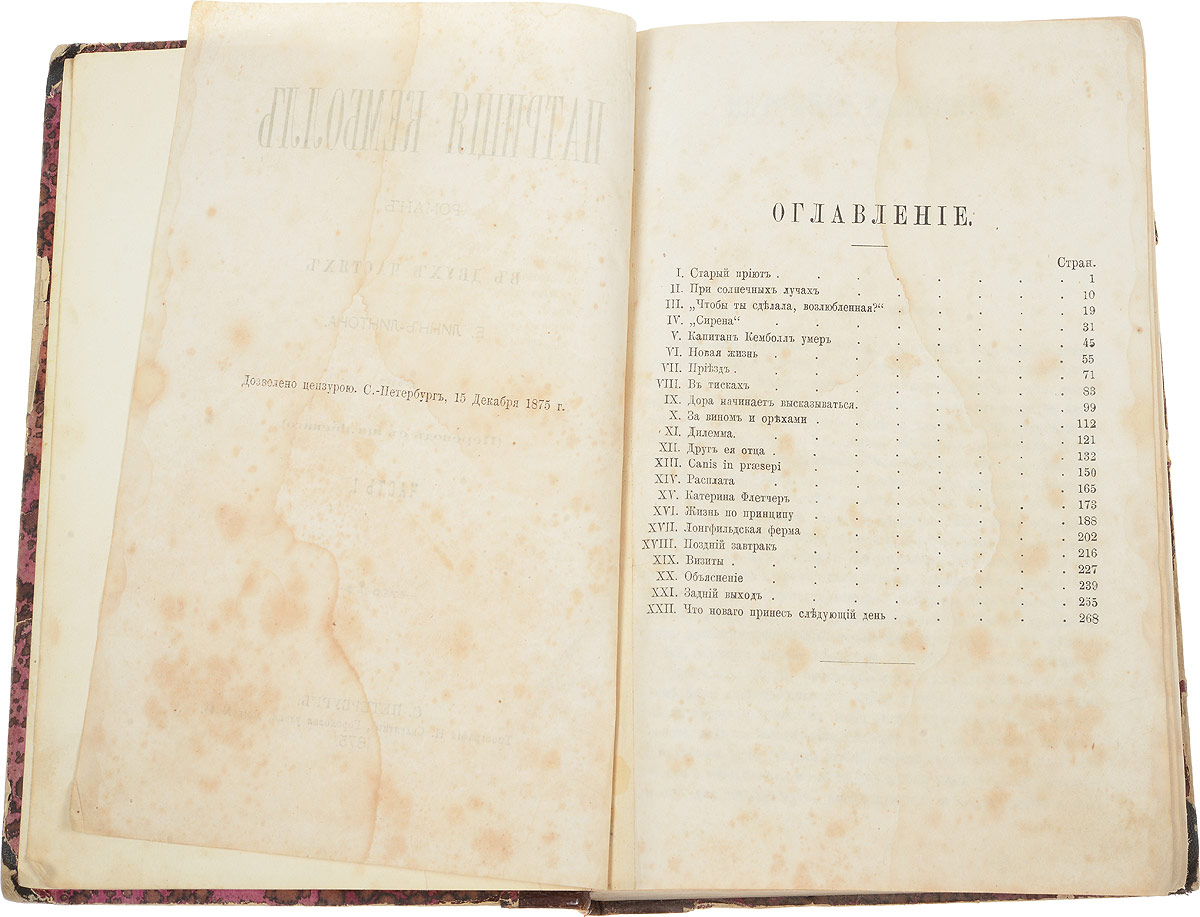 ПАТРИЦІЯ КЕМБОЛЛЪ
РОМАНЪ
ВЪ ДВУХЪ ЧАСТЯХЪ
Е. ЛИННЪ-ЛИНТОНА.
Дозволено цензурою. С.-Петербургъ, 15 Декабря 1875 г.
ЧАСТЬ I.
С. ПЕТЕРБУРГЪ
ОГЛАВЛЕНІЕ.
Стран.
I. Старый пріютъ . . . . . . 1
II. При солнечныхъ лучахъ . . . . . . 10
III. „Чтобы ты сдѣлала, возлюбленная?“ . . . . . 19
IV. „Сирена“ . . . . . . 31
V. Капитанъ Кемболлъ умеръ . . . . . . 45
VI. Новая жизнь . . . . . . 55
VII. Пріѣздъ . . . . . . 71
VIII. Въ тискахъ . . . . . . 83
IX. Дора начинаетъ высказываться . . . . . . 99
X. За виномъ и орѣхами . . . . . . 112
XI. Дилемма . . . . . . 121
XII. Другъ ея отца . . . . . . 132
XIII. Canis in præsepi . . . . . . 150
XIV. Расплата . . . . . . 165
XV. Катерина Флетчеръ . . . . . . 173
XVI. Жизнь по принципу . . . . . . 188
XVII. Лонгфильдская ферма . . . . . . 202
XVIII. Поздній завтракъ . . . . . . 216
XIX. Визиты . . . . . . 227
XX. Объясненіе . . . . . . 239
XXI. Задній выходъ . . . . . . 255
XXII. Что новаго принесъ слѣдующій день . . . . . 268